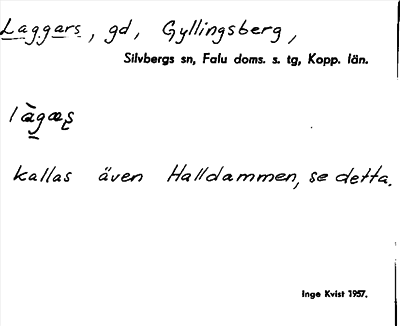 Laggars, gd, Gyllingsberg,
Silvbergs sn, Falu doms. s. tg, Kopp. län.
kallas även Halldammen, se detta.
Inge Kvist 1957.